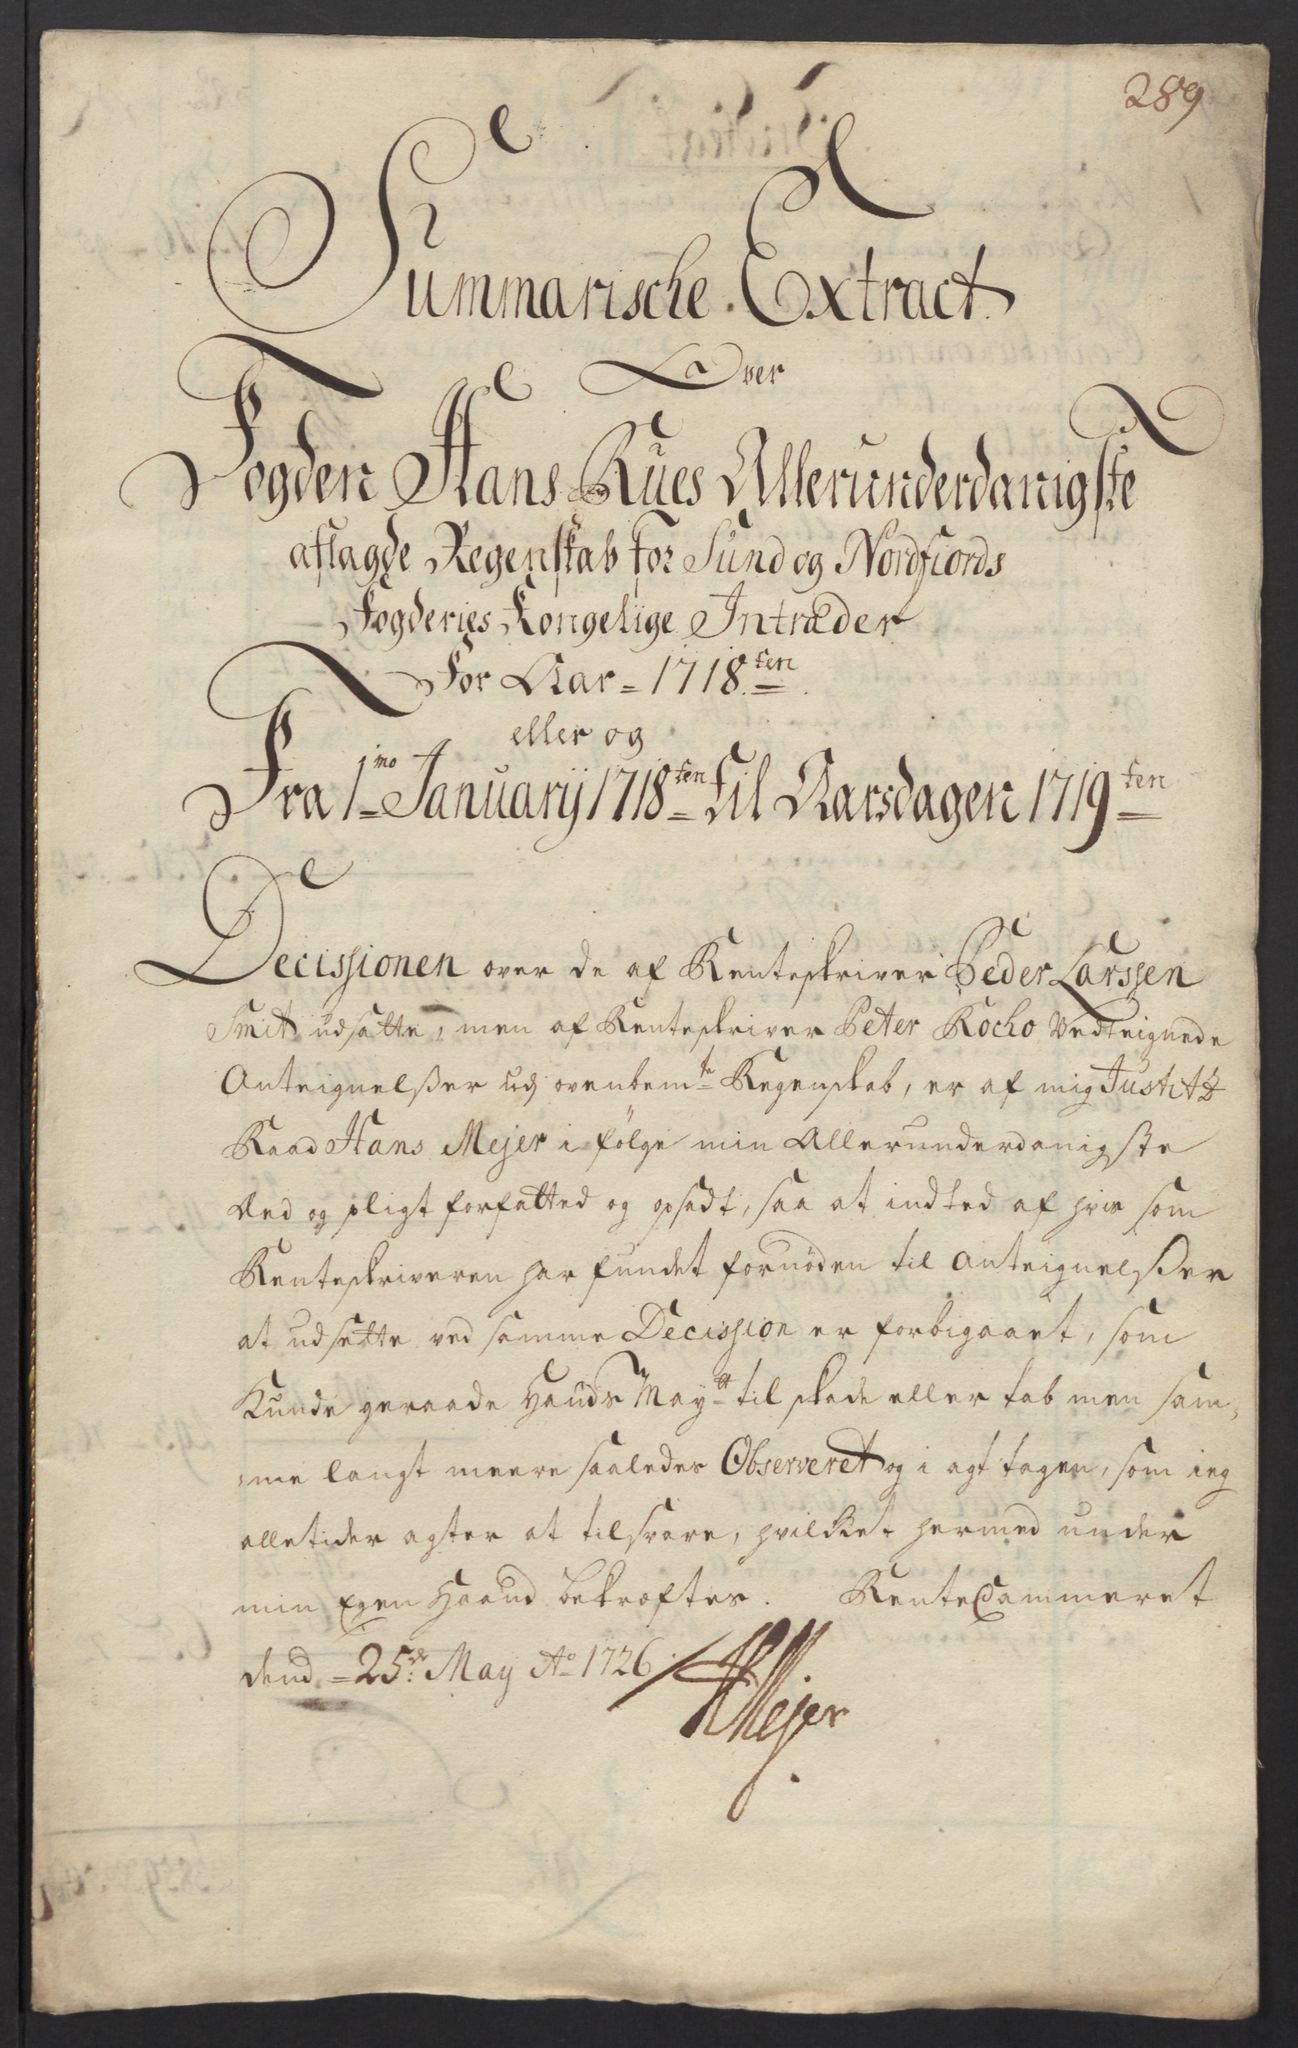 289
Summarische Extract
Over
Fogden Hans Rues Allerunderdanigste
aflagde Regenskab for Sund og Nordfiords
Fogderies Kongelige Intrader
For Aar = 1718.ten
eller og
Fra 1mo Januarij 1718ten til Aarsdagen 1719ten
Decissionen over de af Renteskriver Peder Larssen
Smit udsatte, men af Renteskriver Peter Kocho Vedteignede
Anteignelsser udj ovenbemte Regenskab, er af mig Justitz
Raad Hans Mejer i følge min Allerunderdanigste
Eed og pligt forfatted og opsadt, saa at indted af hvis som
Renteskriveren har fundet fornøden til Anteignelsser
at udsette ved samme Decission er forbigaaet, som
Kunde geraade Hands Maytt til skade eller tab men sam-
me langt meere saaledes Observeret og i agt tagen, som ieg
alletider agter at tilsvare, hvilket hermed under
min Egen Haand bekræftes. RenteCammeret
dend = 25de May Ao 1726
HMejer